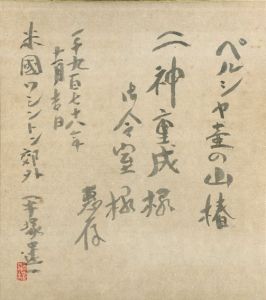 ペルシャ壷の山椿
二神重成様
仝令室様
恵存
一千九百七十八年
十一月吉日
米國ワシントン郊外
平塚運一